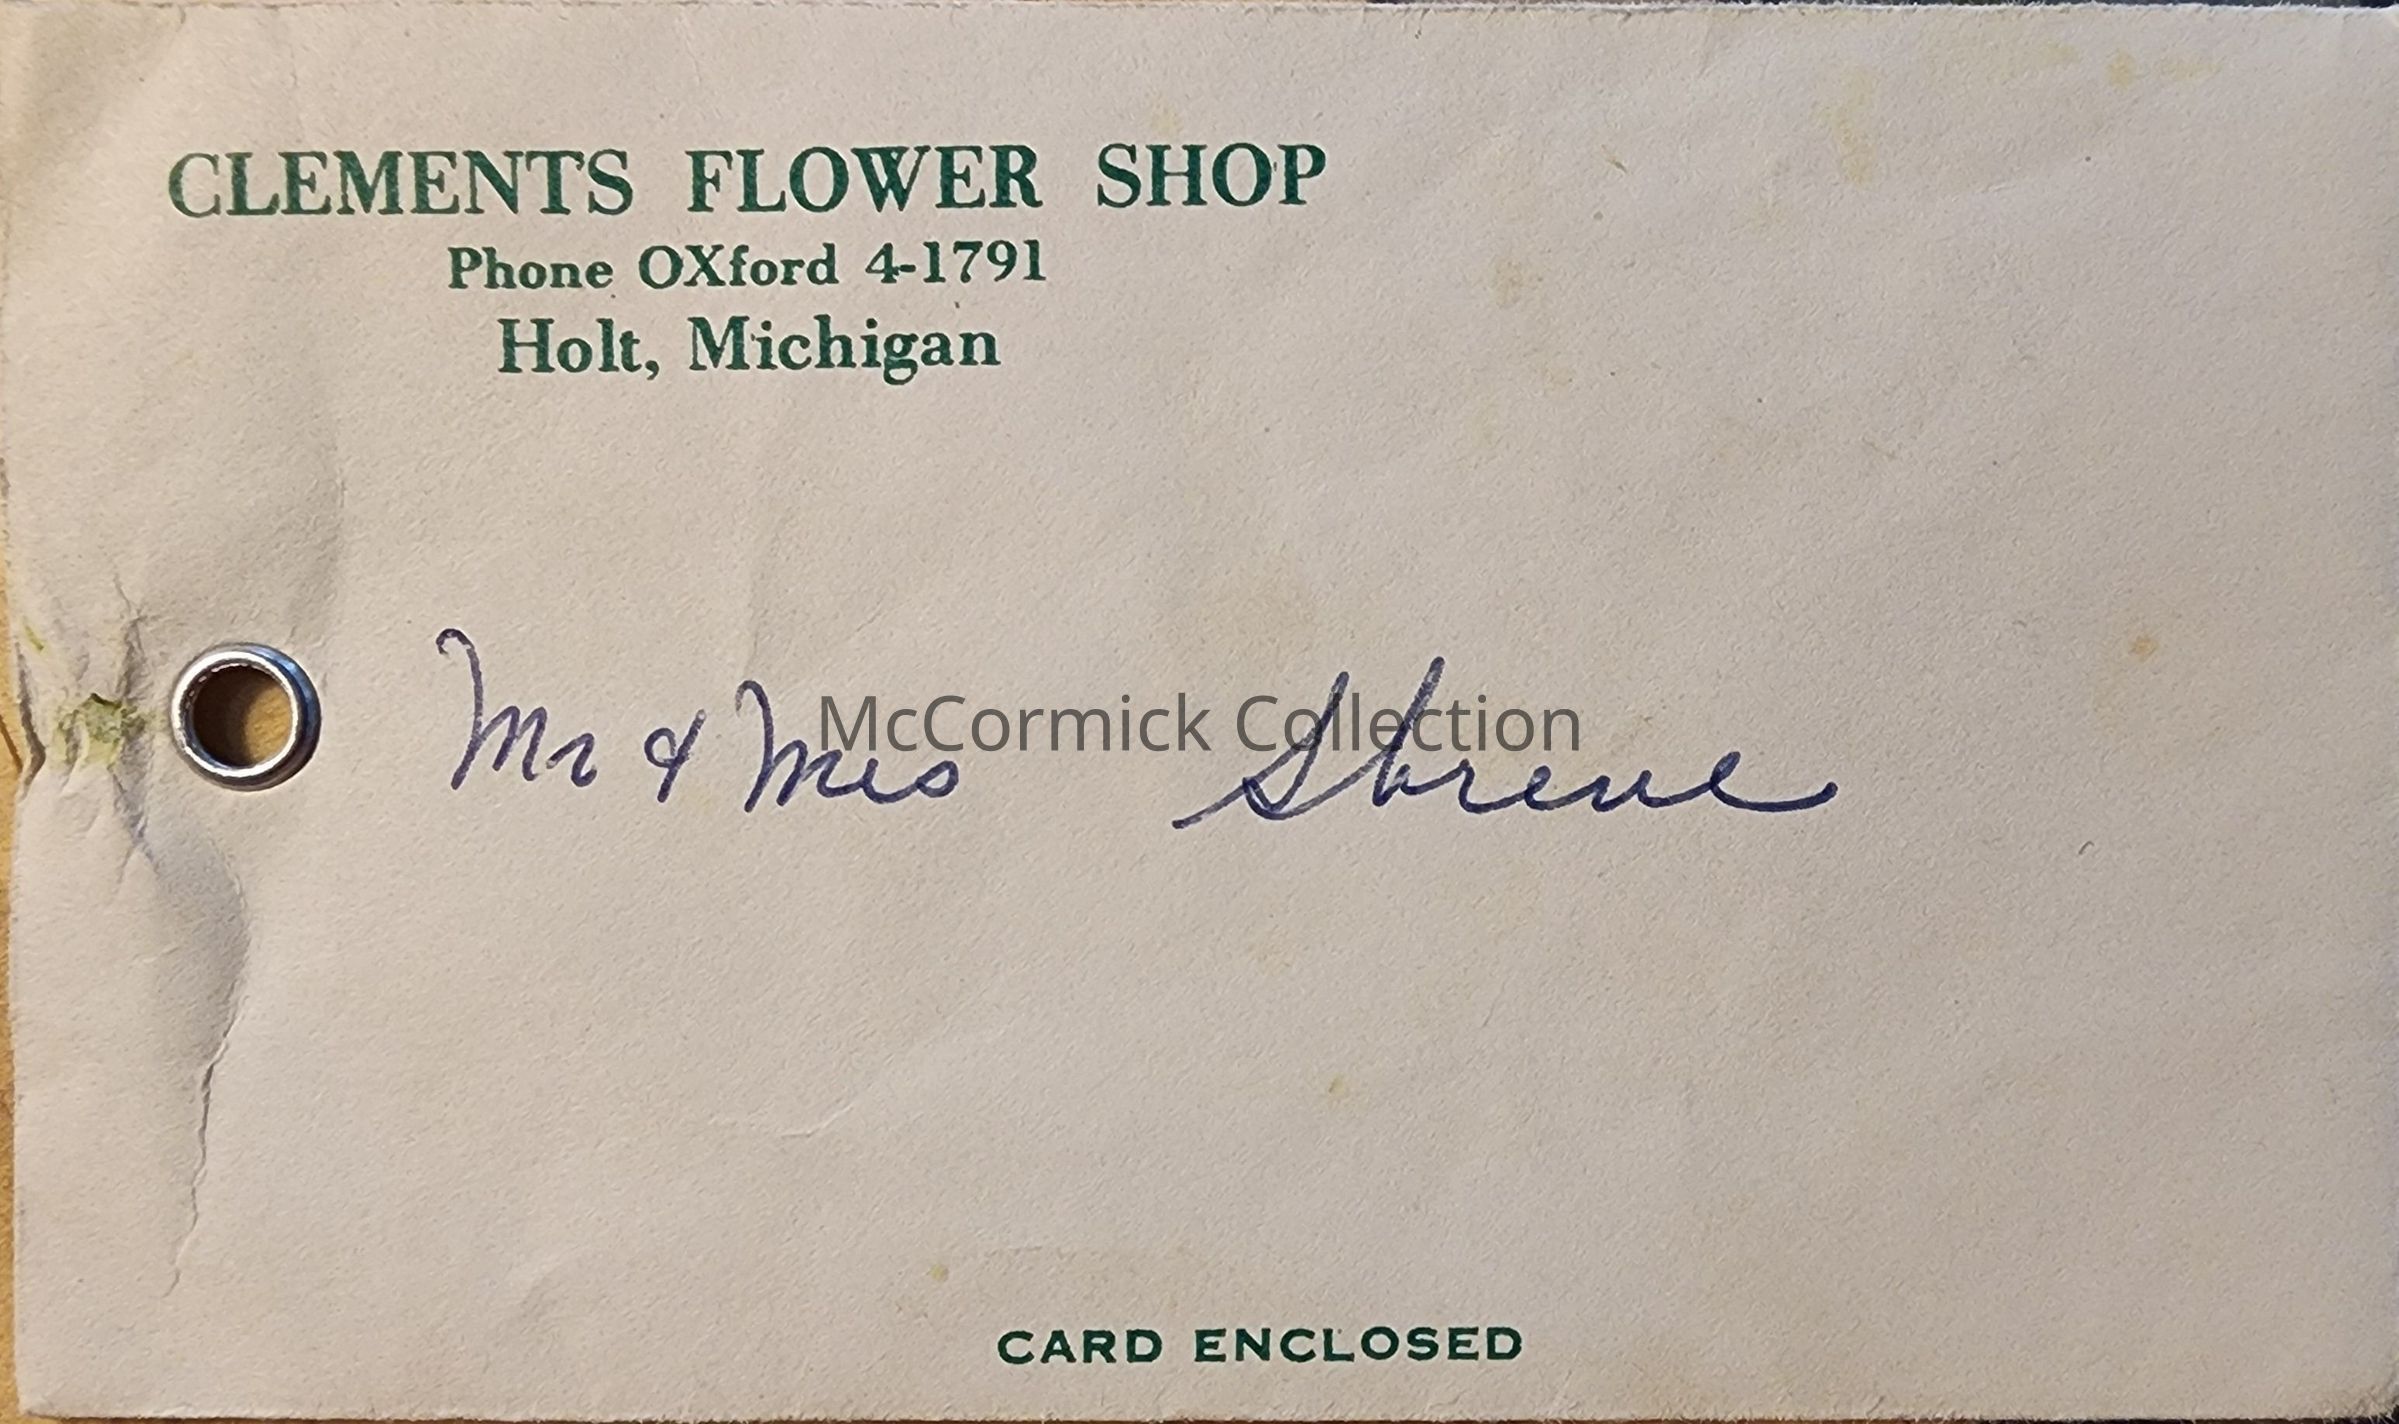 CLEMENTS FLOWER SHOP
Phone OXford 4-1791
Holt, Michigan
Mr & Mrs Shreve
McCormick Collection
CARD ENCLOSED